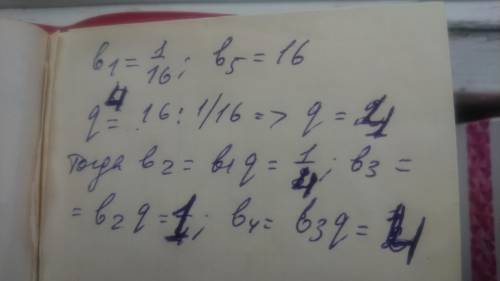 b₁ = 1/16; b₅ = 16
q⁴ = 16 : 1/16 => q = 4
Тогда b₂ = b₁q = 1/4; b₃ =
= b₂q = 1; b₄ = b₃q = 4